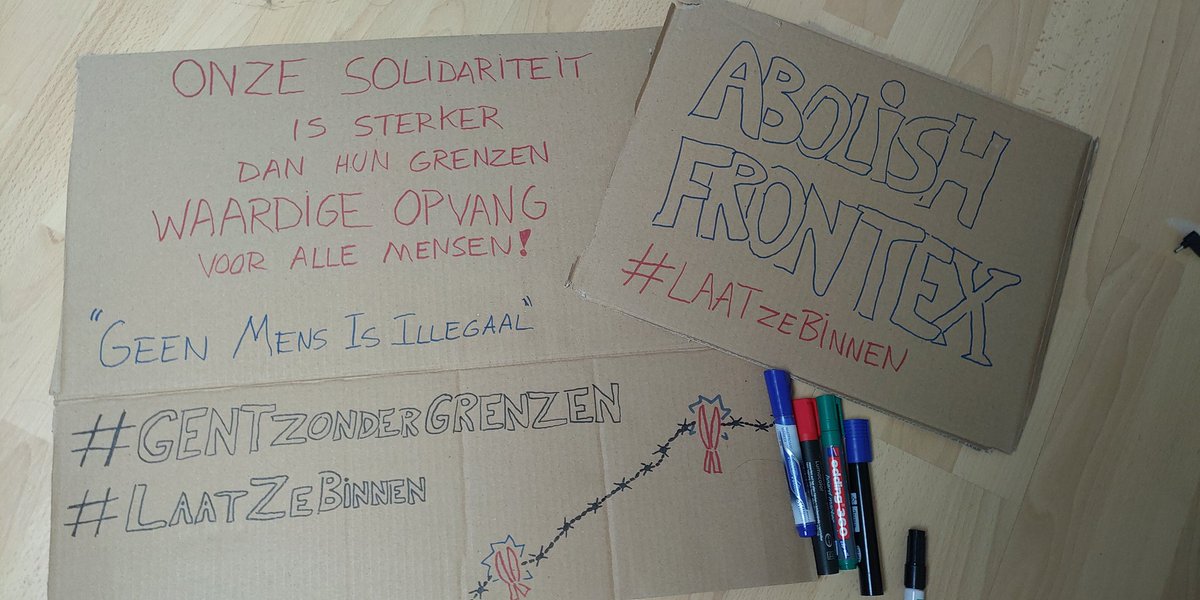 ONZE SOLiDARiTEiT
iS STERKER
DAN HUN GRENZEN
WAARDiGE OPVANG
VOOR ALLE MENSEN!
"GEEN MENS IS ILLEGAAL"
#GENTZONDERGRENZEN
#LAATZEBiNNEN
ABOLiSH
FRONTEX
#LAATZEBiNNEN
edding 360